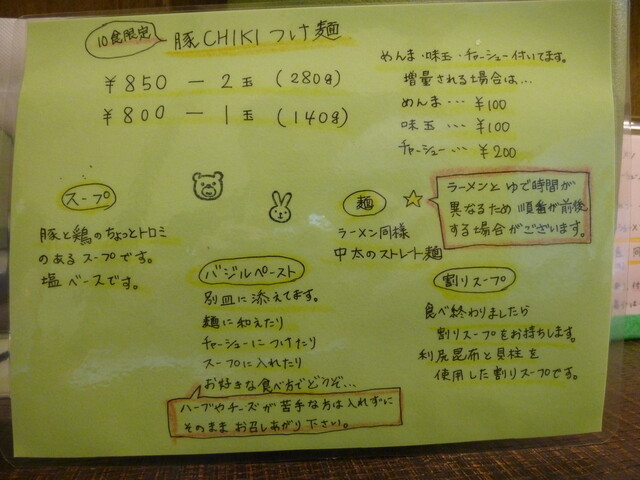 10食限定 豚CHIKIつけ麺
¥850 ― 2玉 (280g)
¥800 ― 1玉 (140g)
めんま・味玉・チャーシュー付いてます。
増量される場合は…
めんま… ¥100
味玉 … ¥100
チャーシュー… ¥200
スープ
豚と鶏のちょっとトロミ
のあるスープです。
塩ベースです。
バジルペースト
別皿に添えてます。
麺に和えたり
チャーシューにつけたり
スープに入れたり
お好きな食べ方でどうぞ…
ハーブやチーズが苦手な方は入れずに
そのままお召しあがり下さい。
麺
ラーメン同様
中太のストレート麺
ラーメンとゆで時間が
異なるため順番が前後
する場合がございます。
割りスープ
食べ終わりましたら
割りスープをお持ちします。
利尻昆布と貝柱を
使用した割りスープです。